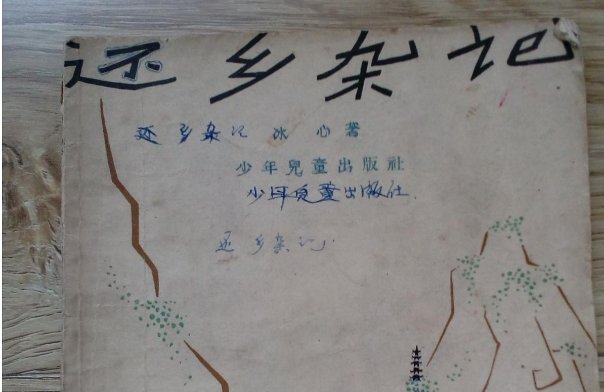 还乡杂记
还乡杂记 冰心著
少年兒童出版社
少年児童出版社
还乡杂记